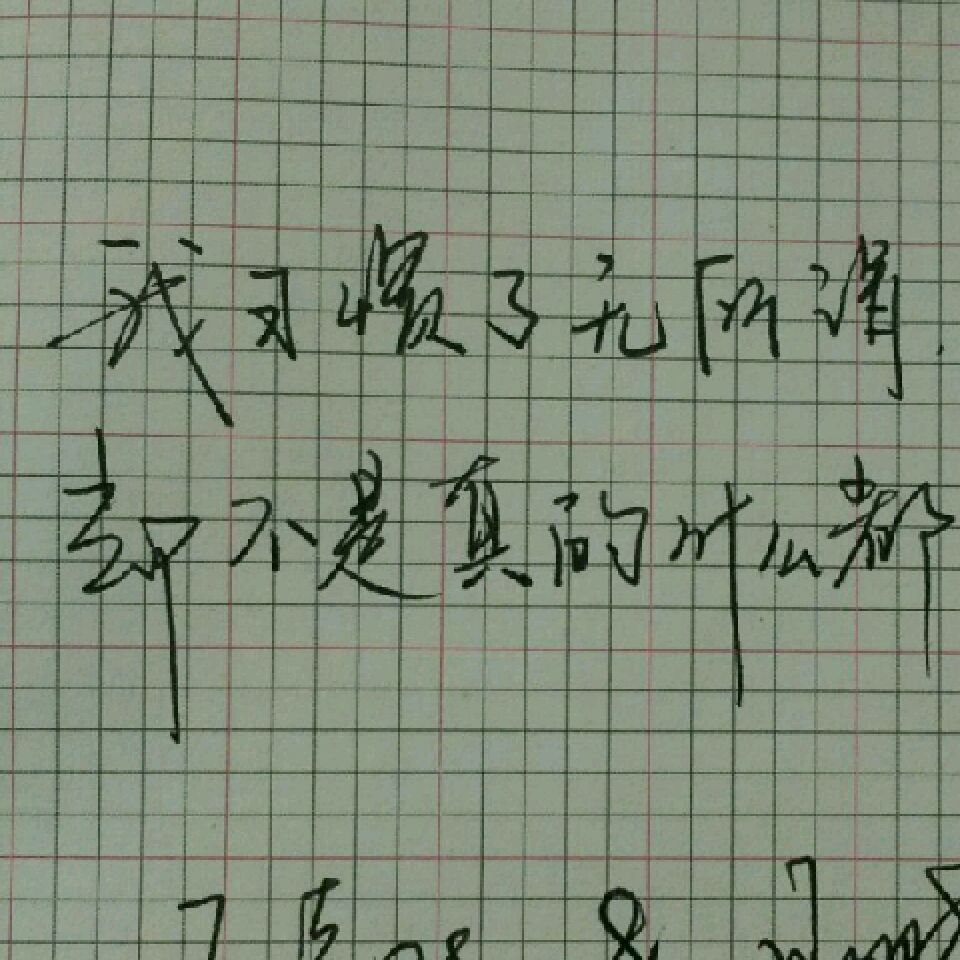 我习惯了无所谓.
却不是真的什么都